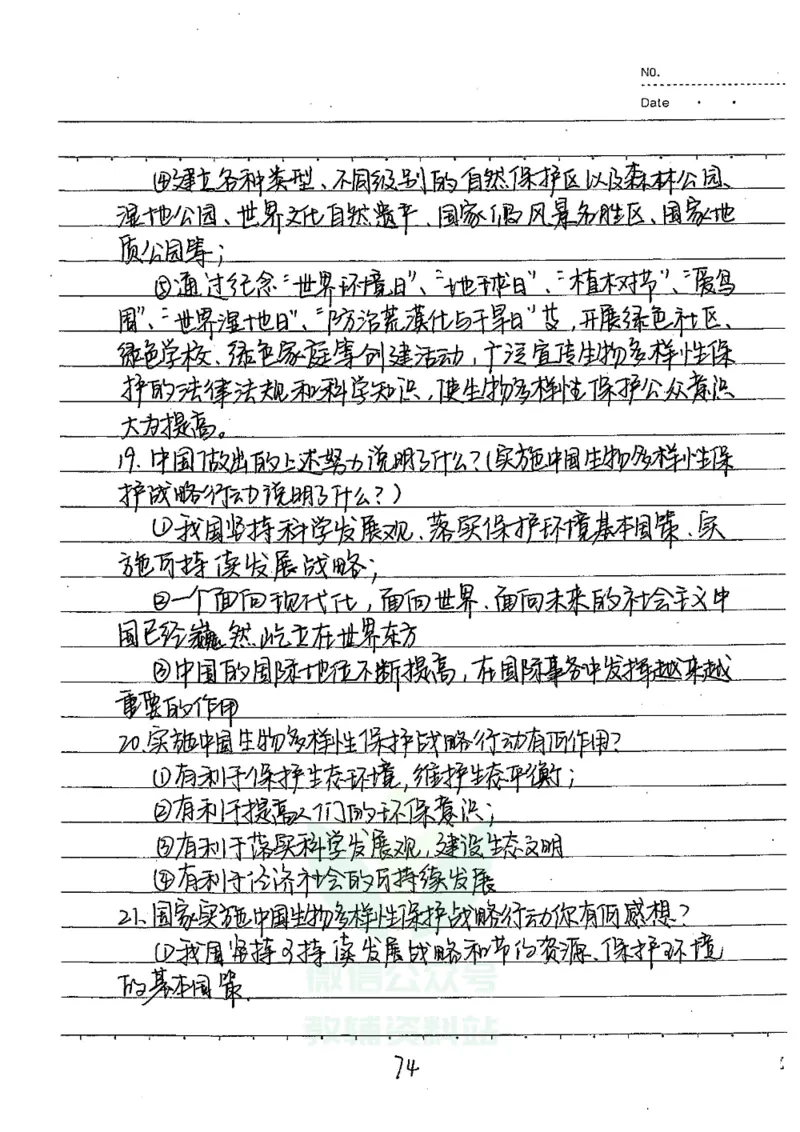 NO.
Date
④建立各种类型、不同级别的自然保护区以及森林公园、
湿地公园、世界文化自然遗产、国家级风景名胜区、国家地
质公园等;
⑤通过纪念“世界环境日”、“地球日”、“植树节”、“爱鸟
周”、“世界湿地日”、“防治荒漠化与干旱日”等,开展绿色社区、
绿色学校、绿色家庭等创建活动,广泛宣传生物多样性保
护的法律法规和科学知识,使生物多样性保护公众意识
大为提高。
19.中国做出的上述努力说明了什么?(实施中国生物多样性保
护战略行动说明了什么?)
①我国坚持科学发展观、落实保护环境基本国策、实
施可持续发展战略;
②一个面向现代化,面向世界、面向未来的社会主义中
国已经巍然屹立在世界东方
③中国的国际地位不断提高,在国际事务中发挥越来越
重要的作用
20.实施中国生物多样性保护战略行动有何作用?
①有利于保护生态环境,维护生态平衡;
②有利于提高人们的环保意识;
③有利于落实科学发展观,建设生态文明
④有利于经济社会的可持续发展
21.国家实施中国生物多样性保护战略行动你有何感想?
①我国坚持可持续发展战略和节约资源、保护环境
的基本国策.
微信公众号
教辅资料站
74